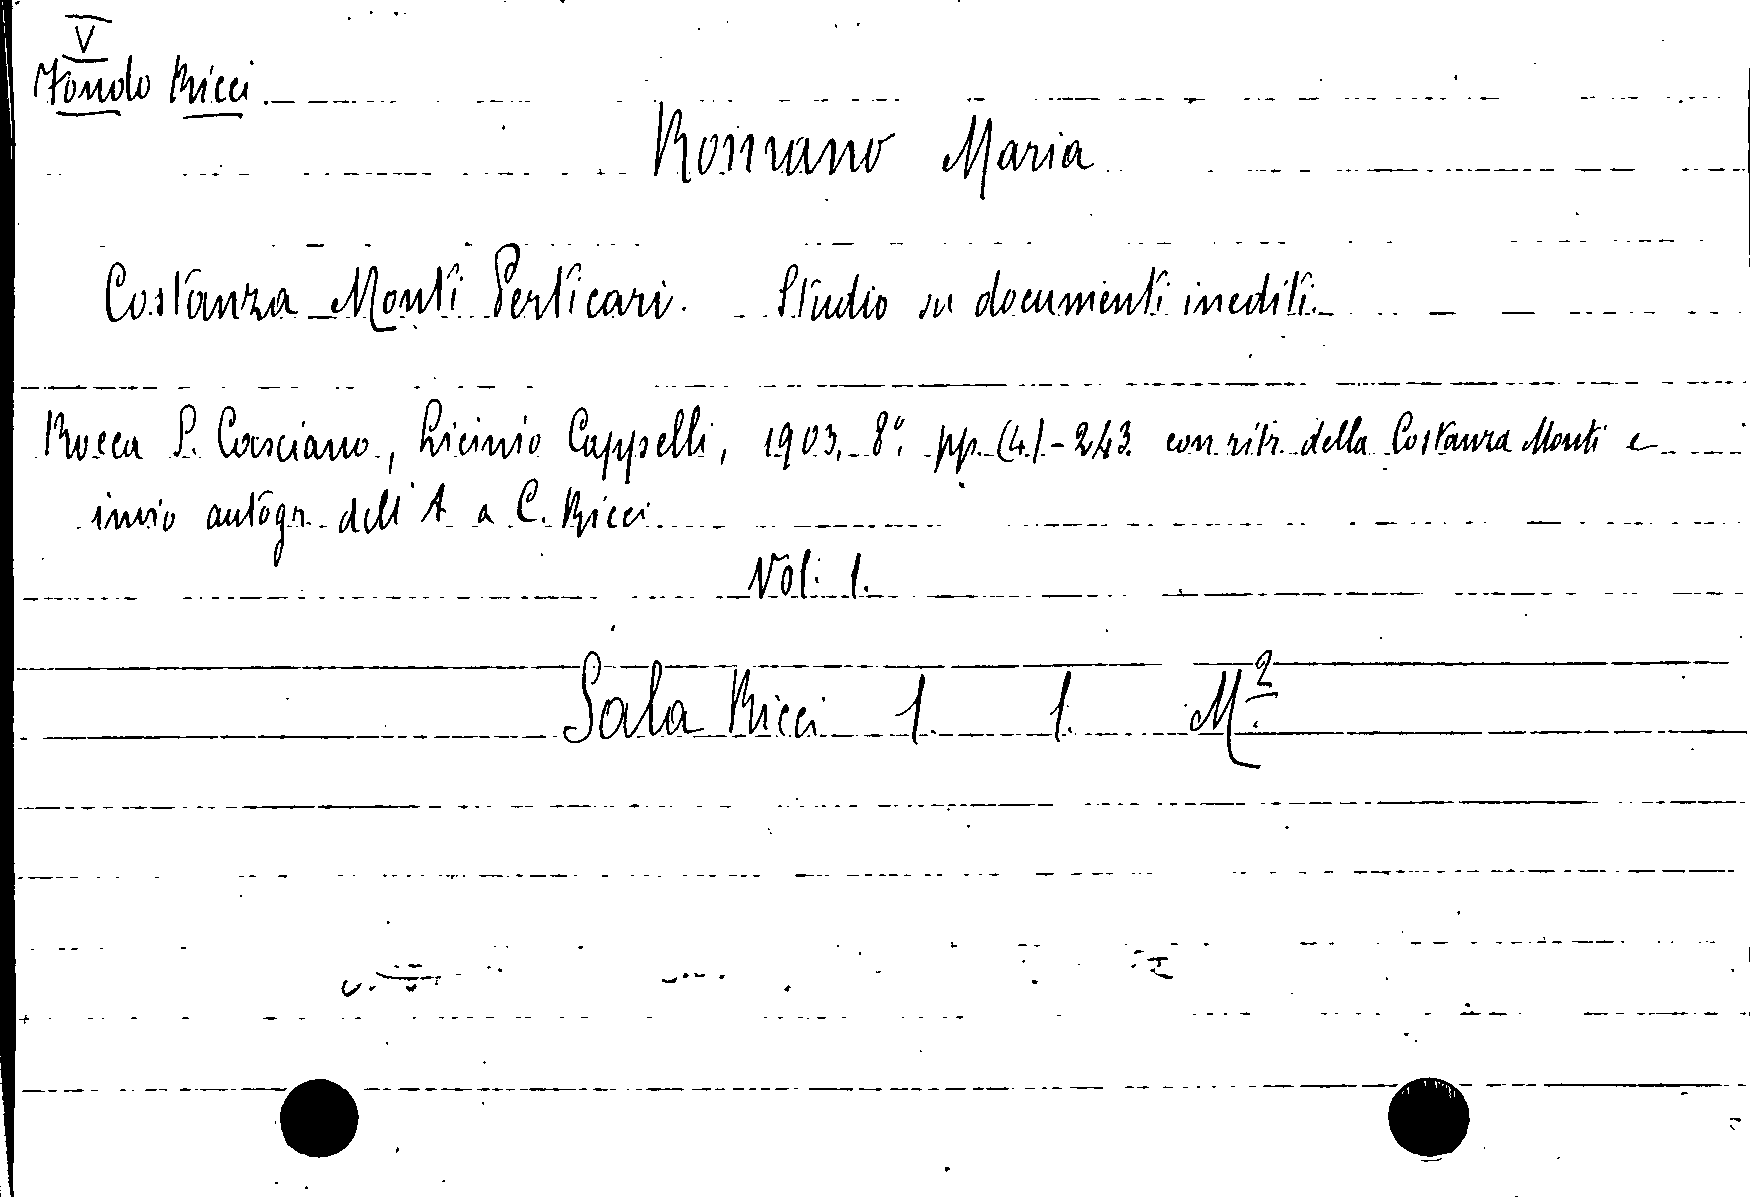 V
Fondo Ricci
Romano Maria
Costanza Monti Perticari. Studio su documenti inediti.
Rocca S. Casciano, Licinio Cappelli, 1903. 8°. pp. (4) - 243. con ritr. della Costanza Monti e
invio autogr. dell'A. a C. Ricci
Vol. 1.
Sala Ricci 1. 1. M².